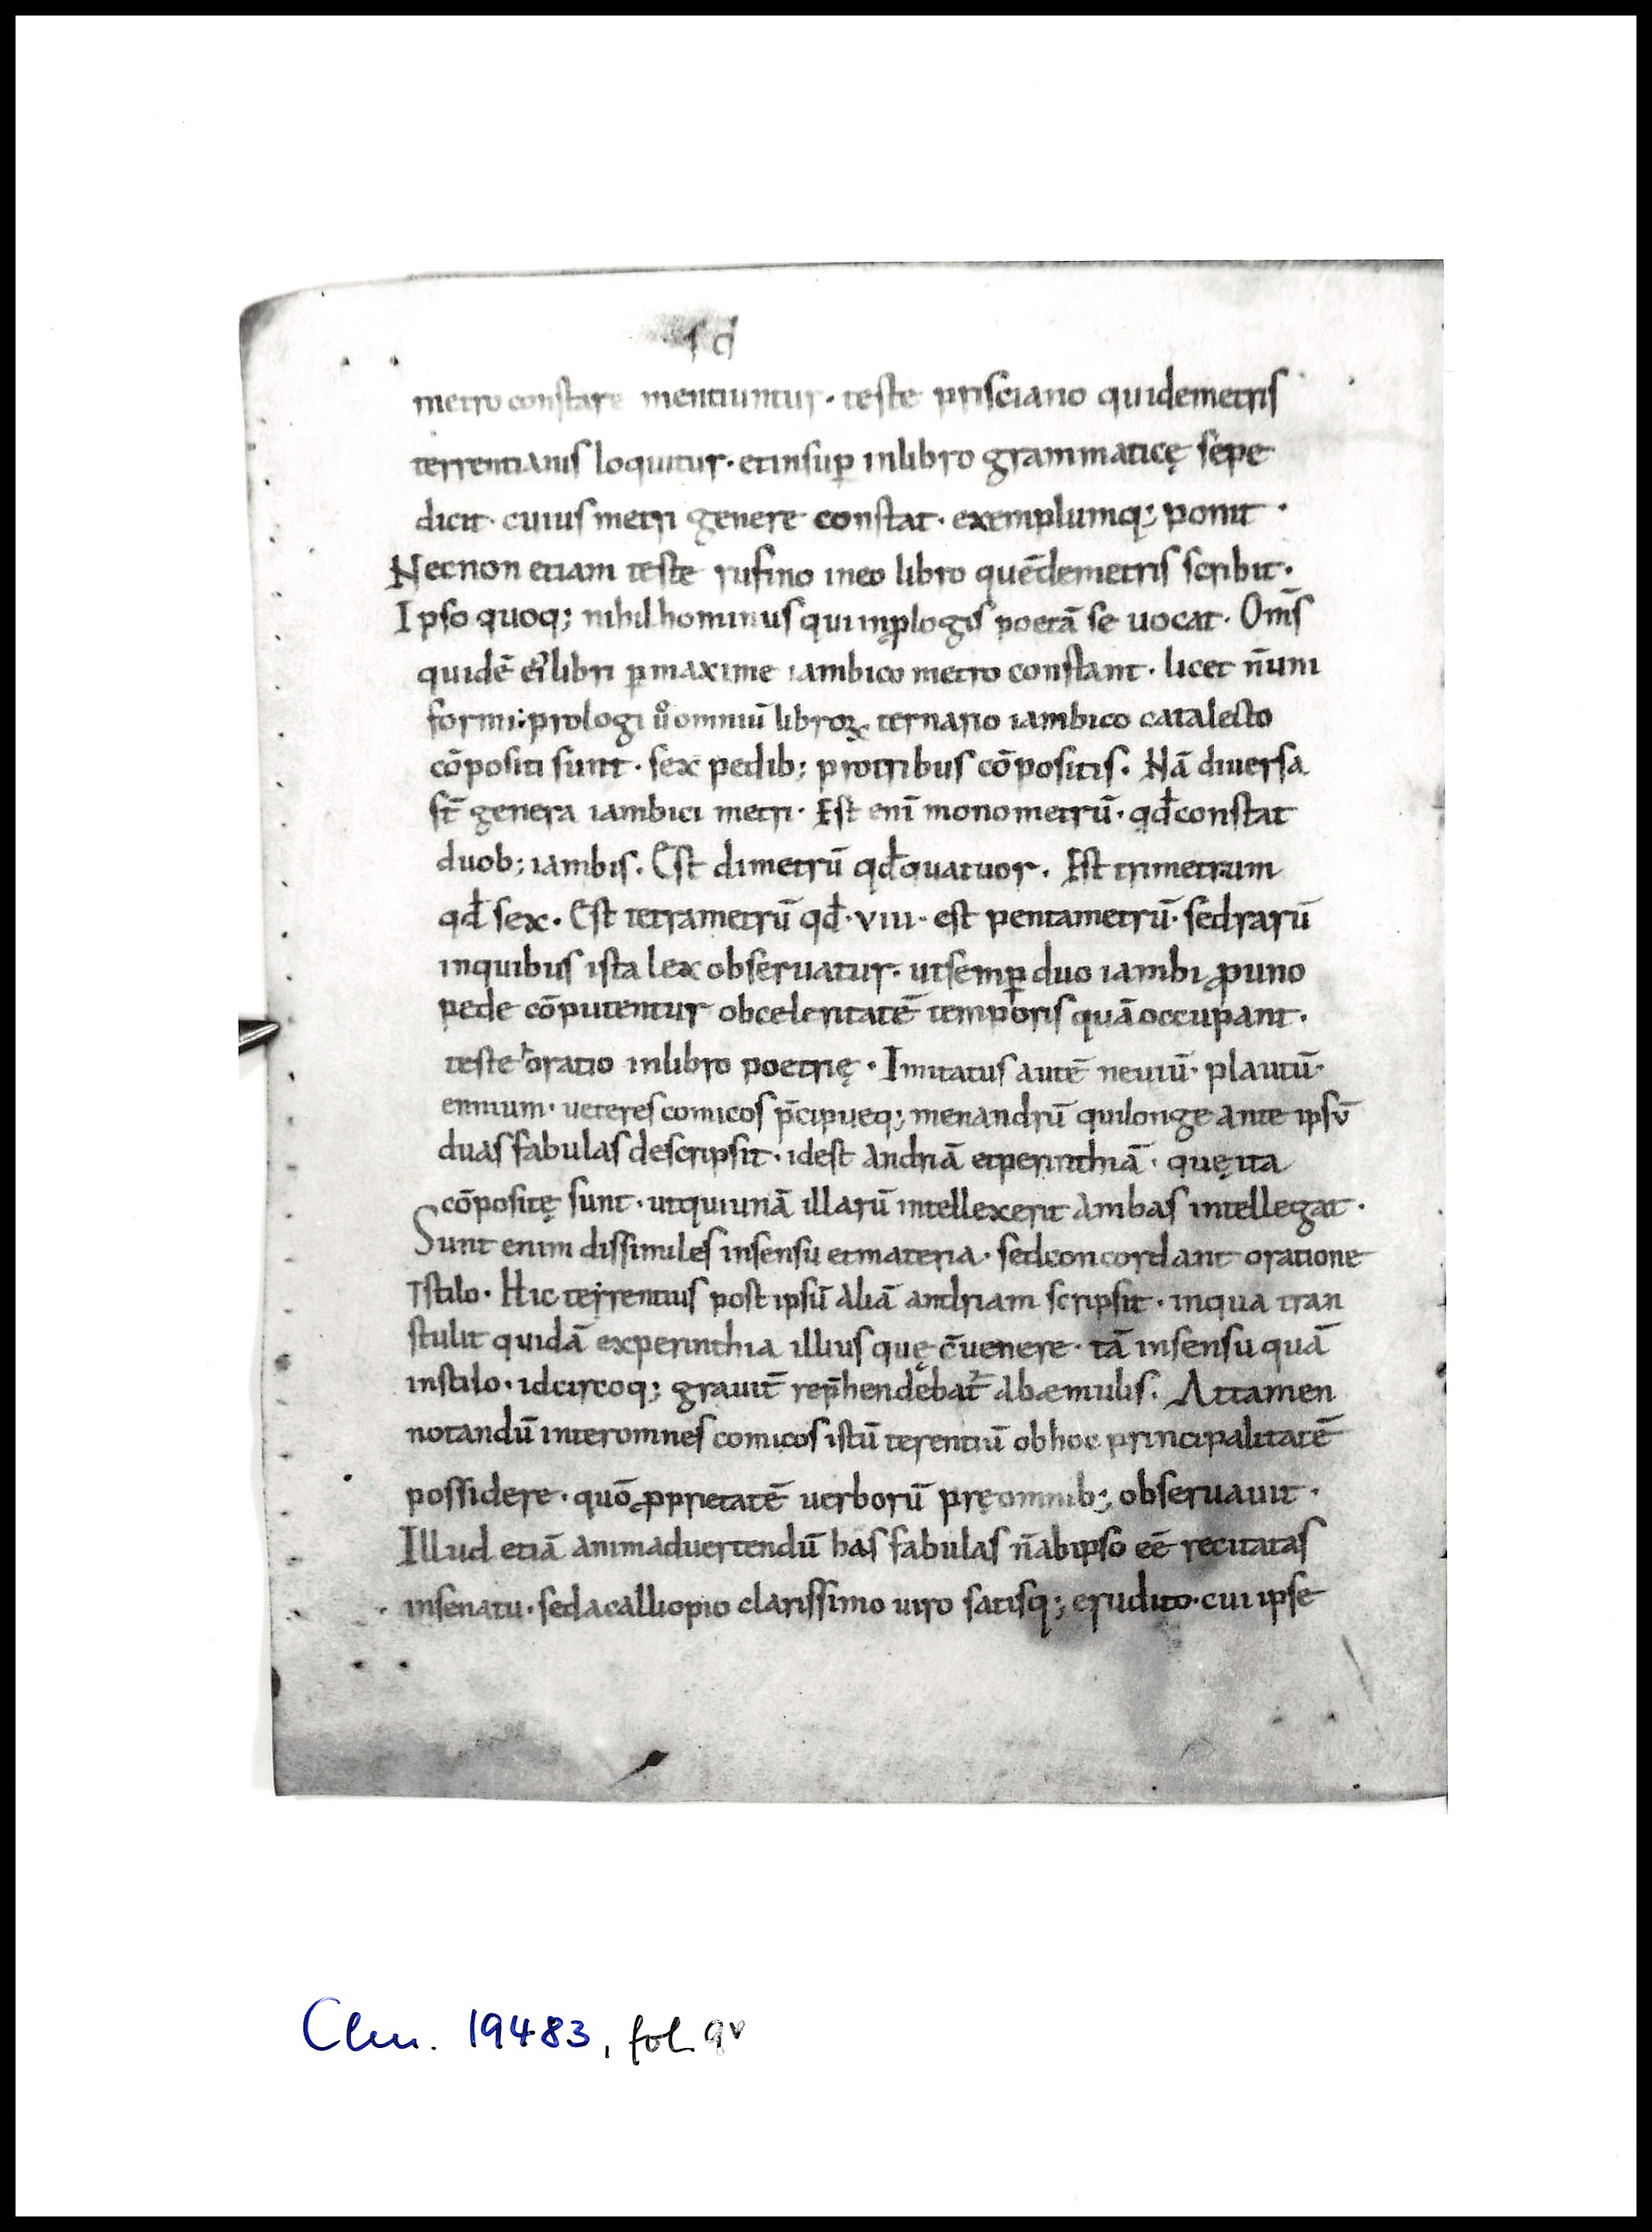 metro constare mentiuntur · teste prisciano quidemetris
terrentianis loquitur · etinsuꝑ inlibro grammaticę sepe
dicit · cuius metri genere constat · exemplumq; ponit ·
Necnon etiam teste rufino ineo libro quẽdemetris scribit ·
Ipso quoq; nihilhominus qui inꝓlogis poetã se uocat · Om̃s
quidẽ ei libri ꝑmaxime iambico metro constant · licet ñuni
formi: prologi ůomniũ libroꝝ ternario iambico catalecto
cõpositi sunt · sex pedib; protribus cõpositis · Nã diuersa
st̃ genera iambici metri · Est enĩ monometrũ · qđconstat
duob; iambis · Est dimetrũ qđquatuor · Est trimetrum
qđ sex · Est tetrametrũ qđ · VIII · est pentametrũ · sedrarũ
inquibus ista lex obseruatur · utsemꝑ duo iambi ꝓuno
pede cõputentur obceleritatẽ temporis quãoccupant ·
teste horatio inlibro poetrię · Imitatus autẽ neuiũ · plautũ ·
ennium · ueteres comicos p̃cipueq; menandrũ quilonge ante ipsũ
duas fabulas descripsit · idest Andriã etperinthiã · quęita
cõpositę sunt · utquiunã illarũ intellexerit Ambas intellegat ·
Sunt enim dissimiles insensu etmateria · sedconcordant oratione
⁊stilo · Hic terrentius post ipsũ Aliã andriam scripsit · inqua tran
stulit quidã experinthia illius quę c̃uenere · tã insensu quã
instilo · idcircoq; grauit̃ rep̃hendebat̃ Abæmulis · Attamen
notandũ interomnes comicos istũ terentiũ obhoc principalitatẽ
possidere · quõ ꝓprietatẽ uerborũ pręomnib; obseruauit ·
Illud etiã animaduertendũ has fabulas ñabipso eẽ recitatas
insenatu · sedacalliopio clarissimo uiro satisq; erudito · cui ipse
Clm. 19483, fol. 9v